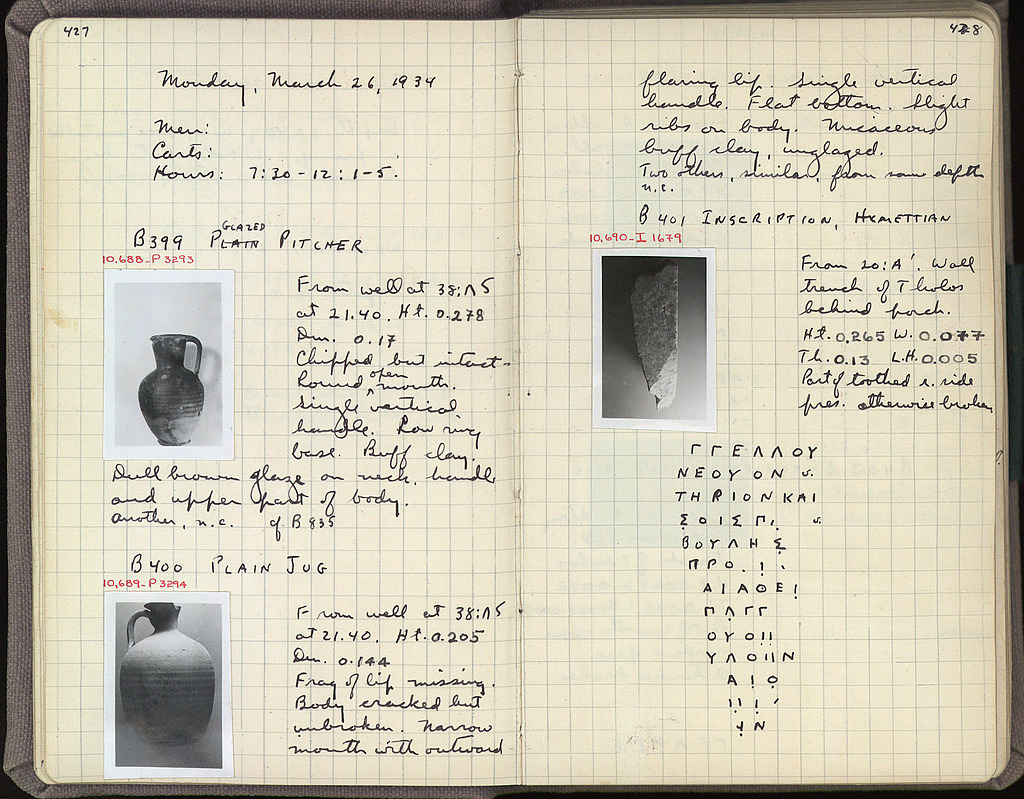 427
Monday, March 26, 1934
Men:
Carts:
Hours: 7:30-12: 1-5.
GLAZED
B399 PLAIN PITCHER
10,688-P 3293
From well at 38:ΛS
at 21.40. Ht. 0.278
Dm. 0.17
Chipped but intact.
Round open mouth.
Single vertical
handle. Low ring
base. Buff clay.
Dull brown glaze on neck, handle
and upper part of body.
another, n.c. cf B 835
B400 PLAIN JUG
10,689-P 3294
From well at 38:ΛS
at 21.40. Ht. 0.205
Dm. 0.144
Frag of lip missing.
Body cracked but
unbroken. Narrow
mouth with outward
428
flaring lip. Single vertical
handle. Flat bottom. Slight
ribs on body. Micaceous
buff clay, unglazed.
Two others, similar, from same depth
n.c.
B 401 INSCRIPTION, HYMETTIAN
10,690-I 1679
From 20:A'. Wall
trench of Tholos
behind porch.
Ht. 0.265 W. 0.077
Th. 0.13 L.H. 0.005
Part of toothed r. side
pres. otherwise broken
ΓΓΕΛΛΟΥ
ΝΕΟΥΟΝ v.
ΤΗΡΙΟΝΚΑΙ
ΣΟΙΣΠ v.
ΒΟΥΛΗΣ
ΠΡΟ
ΑΙΑΘΕ
ΠΛΓΓ
ΟΥΟΙΙ
ΥΛΟΙΙΝ
ΑΙΟ